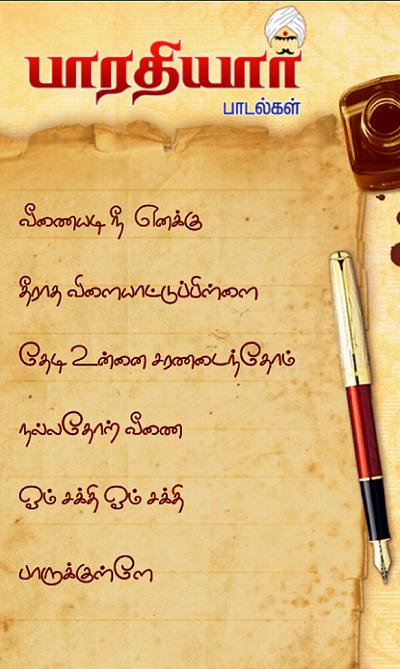 பாரதியார்
பாடல்கள்
வீணையடி நீ எனக்கு
தீராத விளையாட்டுப்பிள்ளை
தேடி உன்னை சரணடைந்தோம்
நல்லதோர் வீணை
ஓம் சக்தி ஓம் சக்தி
பாருக்குள்ளே